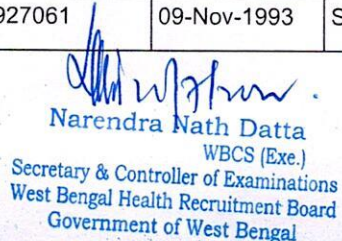 927061 09-Nov-1993 S
Narendra Nath Datta
WBCS (Exe.)
Secretary & Controller of Examinations
West Bengal Health Recruitment Board
Government of West Bengal